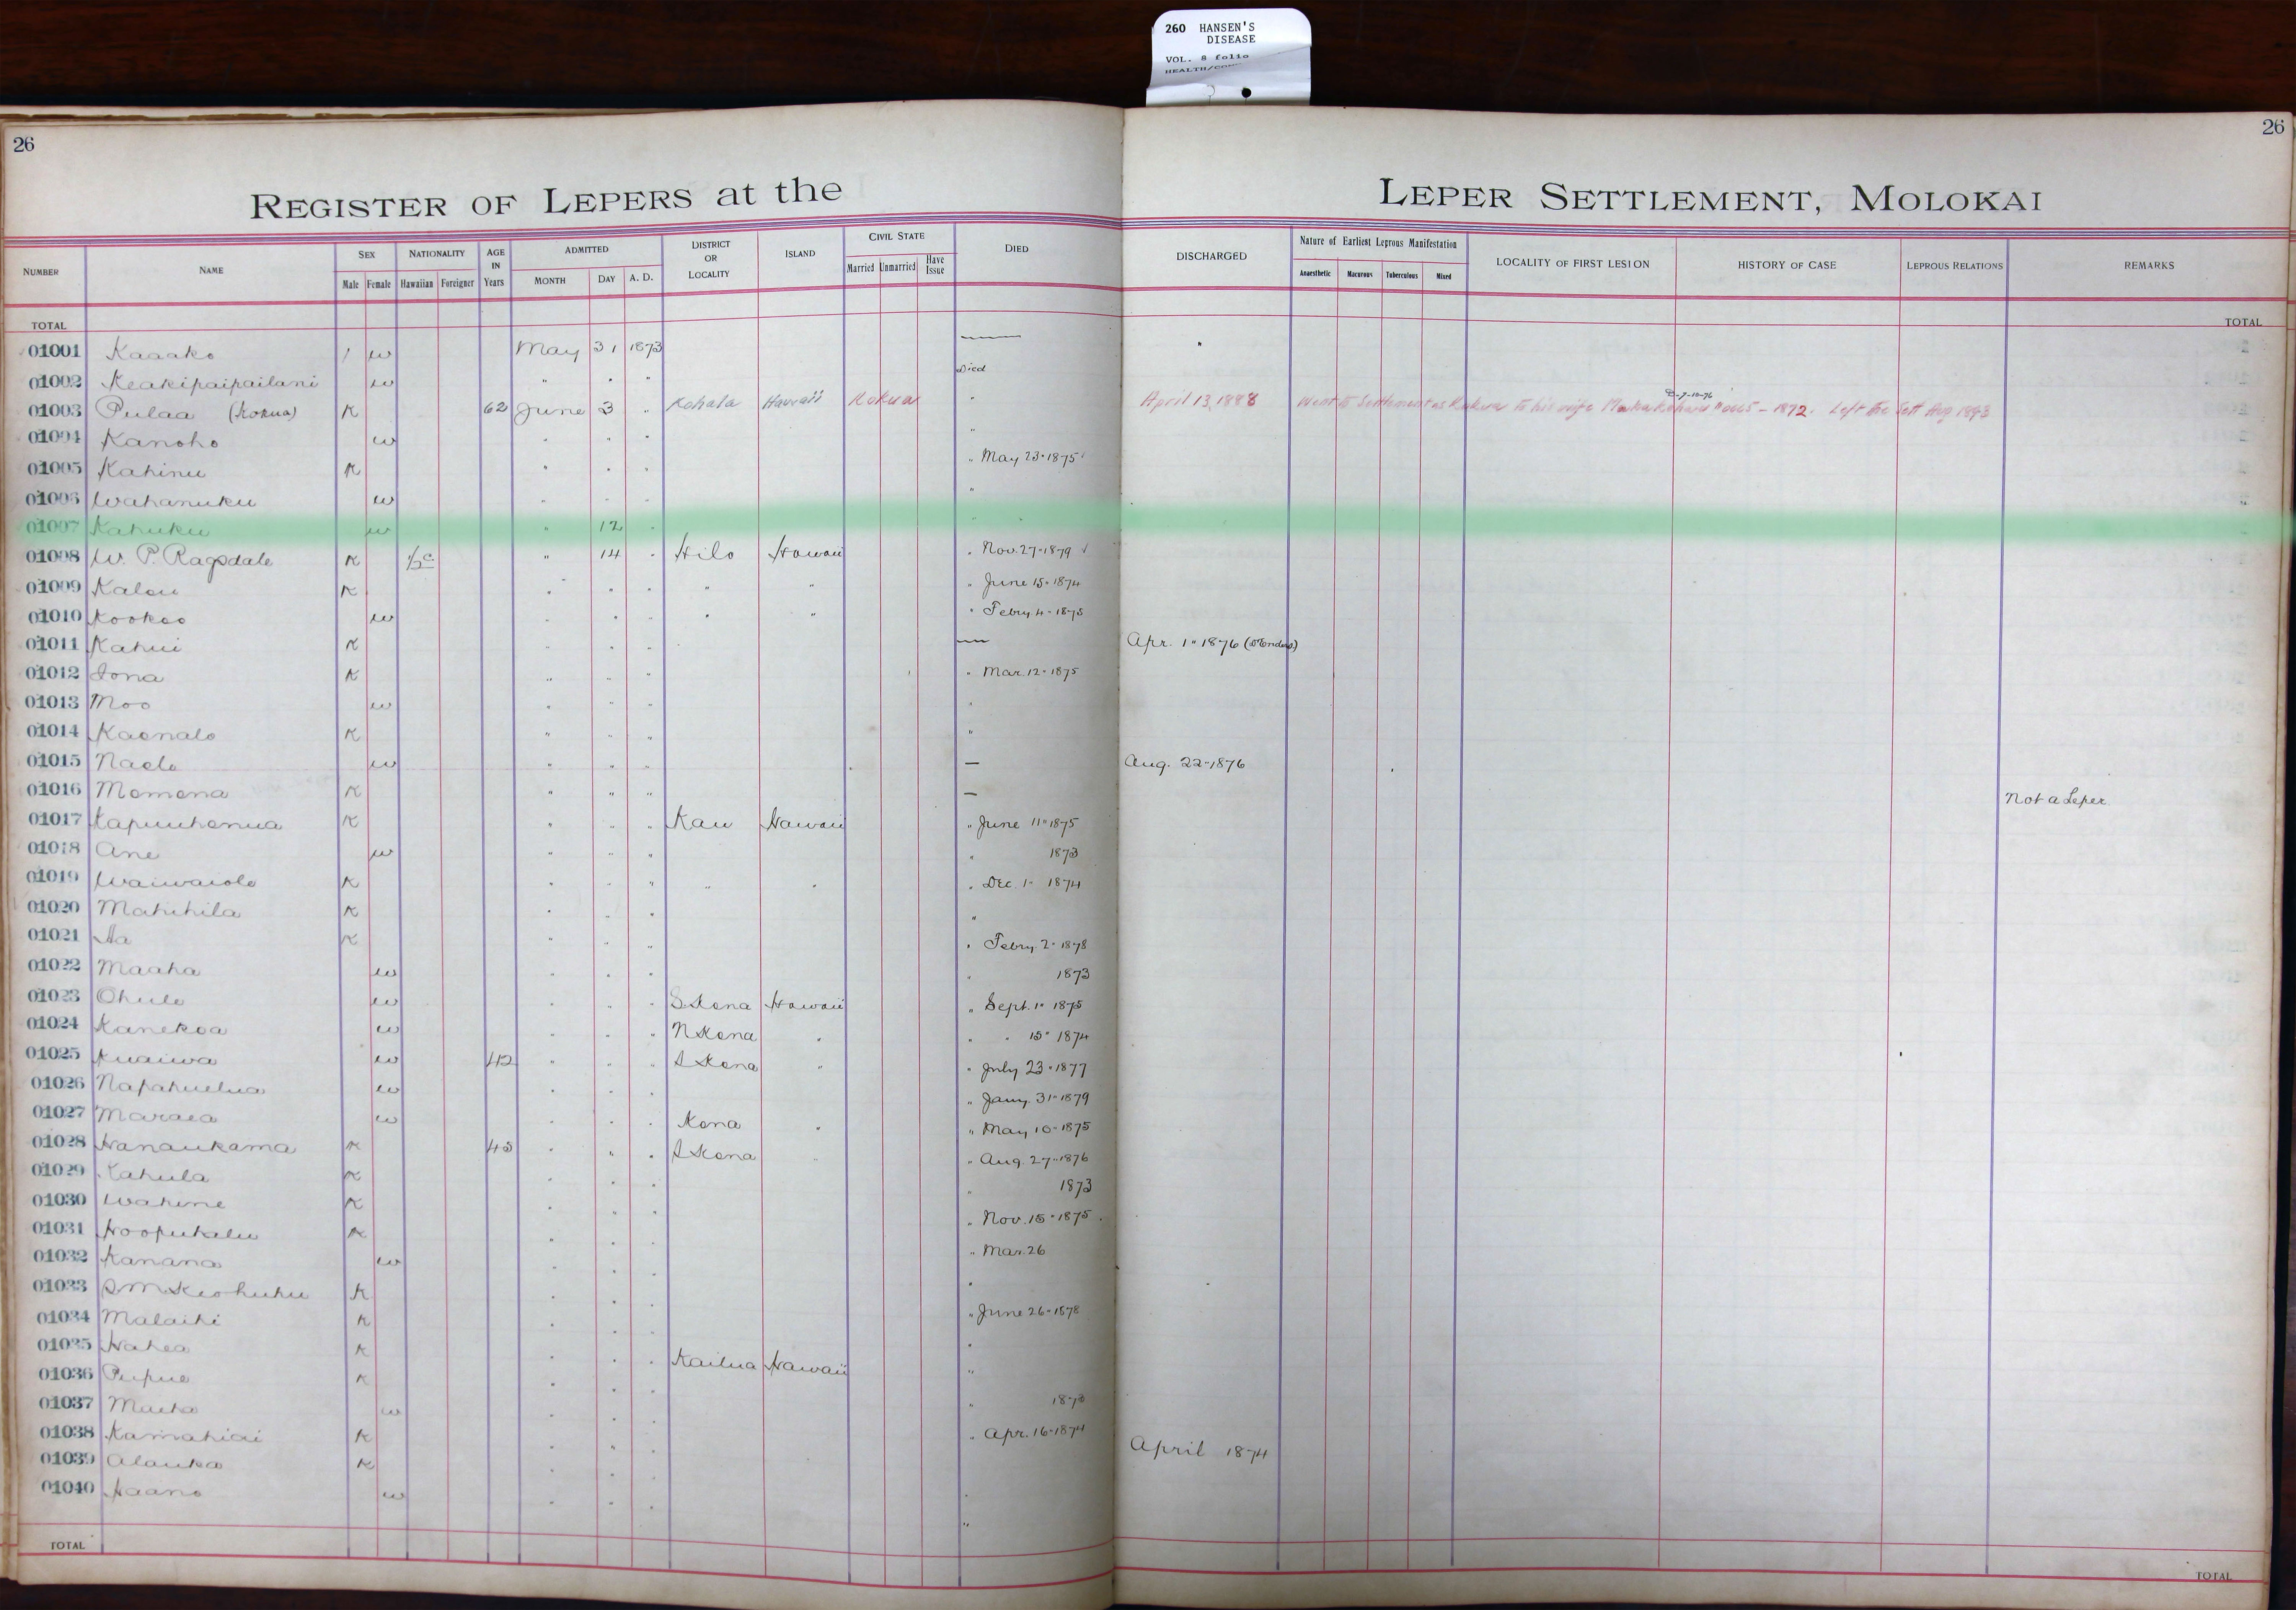 260 HANSEN'S
DISEASE
VOL. 8 folio
26
26
REGISTER OF LEPERS at the LEPER SETTLEMENT, MOLOKAI
NUMBER NAME SEX Male Female NATIONALITY Hawaiian Foreigner AGE IN Years ADMITTED MONTH DAY A. D. DISTRICT OR LOCALITY ISLAND CIVIL STATE Married Unmarried Have Issue DIED DISCHARGED Nature of Earliest Leprous Manifestation Anaesthetic Macurous Tuberculous Mixed LOCALITY OF FIRST LESION HISTORY OF CASE LEPROUS RELATIONS REMARKS
TOTAL TOTAL
01001 Kaaako / w May 31 1873 —
01002 Keakipaipailani w " " " Died
01003 Pulaa (Kokua) K 62 June 3 " Kohala Hawaii Kokua " April 13, 1888 Went to Settlement as Kokua to his wife - 1872. Left the Sett Aug 1893
01004 Kanoho w " " " "
01005 Kahinu K " " " " May 23" 1875
01006 Wahanuku w " " " "
01007 Kahuku w " 12 " "
01008 W. P. Ragsdale K 1/2 c " 14 " Hilo Hawaii " Nov. 27" 1879 √
01009 Kalou K " " " " " " June 15" 1874
01010 Kookoo w " " " " " " Febry 4 - 1875
01011 Kahui K " " " — Apr. 1" 1876
01012 Iona K " " " " Mar. 12" 1875
01013 Moo w " " " "
01014 Kaonalo K " " " "
01015 Naelo w " " " — Aug. 22" 1876
01016 Momona K " " " — Not a Leper
01017 Kapuuhonua K " " " Kau Hawaii " June 11" 1875
01018 Ane w " " " " 1873
01019 Waiwaiole K " " " " " " Dec. 1" 1874
01020 Mahihila K " " " "
01021 Aa K " " " " Febry. 2" 1878
01022 Maaha w " " " " 1873
01023 Ohule w " " " S. Kona Hawaii " Sept. 1" 1875
01024 Kanekoa w " " " N Kona " " " 15" 1874
01025 Kuaiwa w 42 " " " S Kona " " July 23" 1877
01026 Napahuelua w " " " " Jany. 31" 1879
01027 Maraea w " " " Kona " " May 10" 1875
01028 Hanaukama K 45 " " " S Kona " " Aug. 27" 1876
01029 Kahula K " " " " 1873
01030 Wahine K " " " " Nov. 15" 1875
01031 Hoopukalu K " " " " Mar. 26
01032 Kanana w " " " "
01033 S M Keohuhu K " " " " June 26" 1878
01034 Malaihi K " " " "
01035 Hahea K " " " Kailua Hawaii "
01036 Pupue K " " " " 1873
01037 Maeha w " " " " Apr. 16" 1874
01038 Kamahiai K " " " April 1874
01039 Alauka K " " " "
01040 Haano w " " " "
TOTAL TOTAL